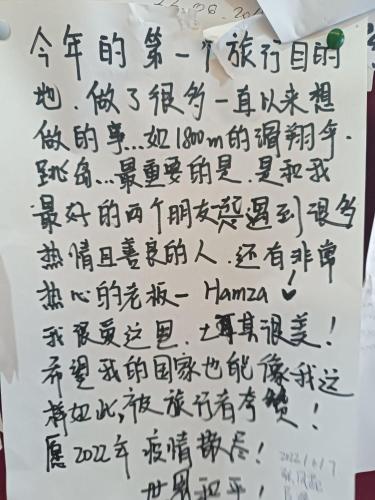 今年的第一个旅行目的
地.做了很多一直以来想
做的事...如1800m的滑翔伞.
跳岛...最重要的是.是和我
最好的两个朋友一起遇到很多
热情且善良的人.还有非常
热心的老板— Hamza
我很爱这里.土耳其很美!
希望我的国家也能像我这
样如此,被旅行者夸赞!
愿2022年 疫情散尽!
世界和平!
2022.1.17